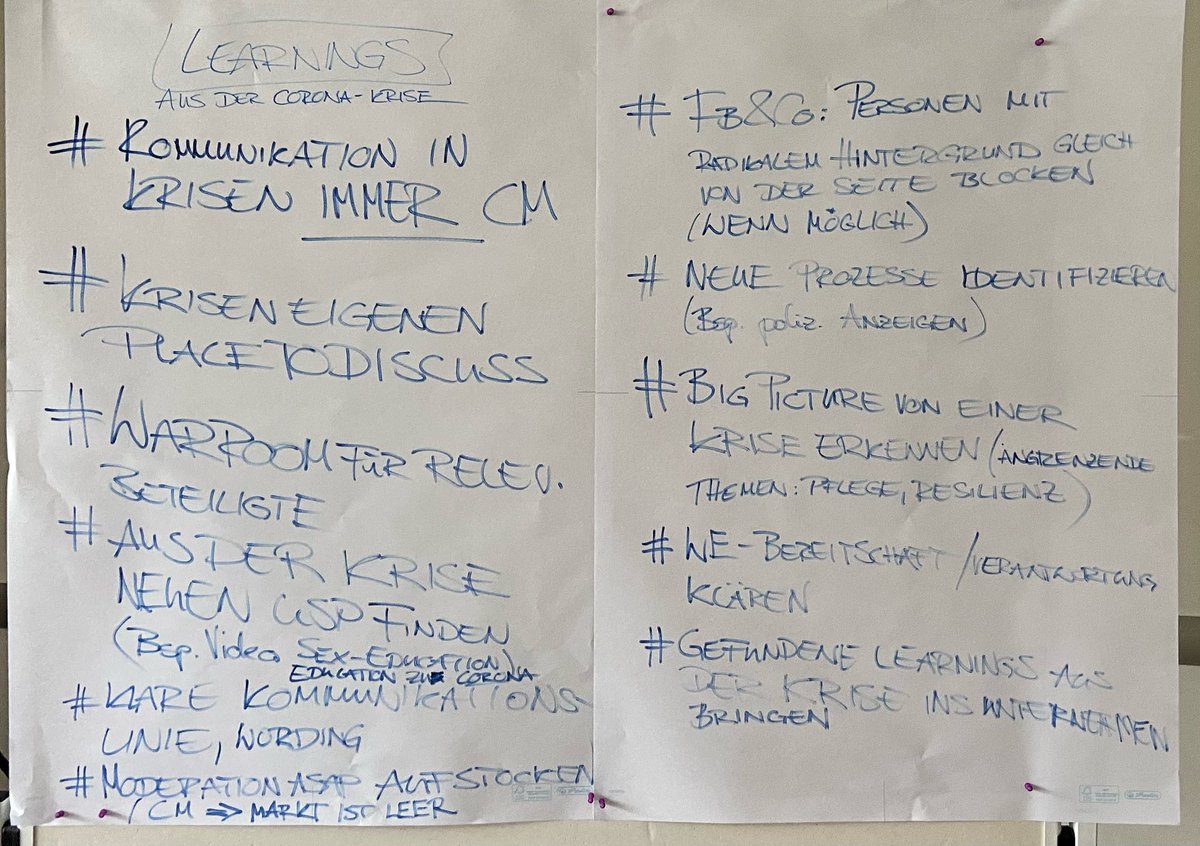 LEARNINGS
AUS DER CORONA-KRISE
# KOMMUNIKATION IN
KRISEN IMMER CM
# KRISENEIGENEN
PLACE TO DISCUSS
# WARROOM FÜR RELEV.
BETEILIGTE
# AUS DER KRISE
NEUEN USP FINDEN
(Bsp. Video SEX-EDUCATION)
EDUCATION ZU CORONA
# KLARE KOMMUNIKATIONS-
LINIE, WORDING
# MODERATION ASAP AUFSTOCKEN
/ CM => MARKT IST LEER
# FB & CO: PERSONEN MIT
RADIKALEM HINTERGRUND GLEICH
VON DER SEITE BLOCKEN
(WENN MÖGLICH)
# NEUE PROZESSE IDENTIFIZIEREN
(Bsp. poliz. ANZEIGEN)
# BIG PICTURE VON EINER
KRISE ERKENNEN (ANGRENZENDE
THEMEN: PFLEGE, RESILIENZ)
# WE-BEREITSCHAFT / VERANTWORTUNG
KLÄREN
# GEFUNDENE LEARNINGS AUS
DER KRISE INS UNTERNEHMEN
BRINGEN